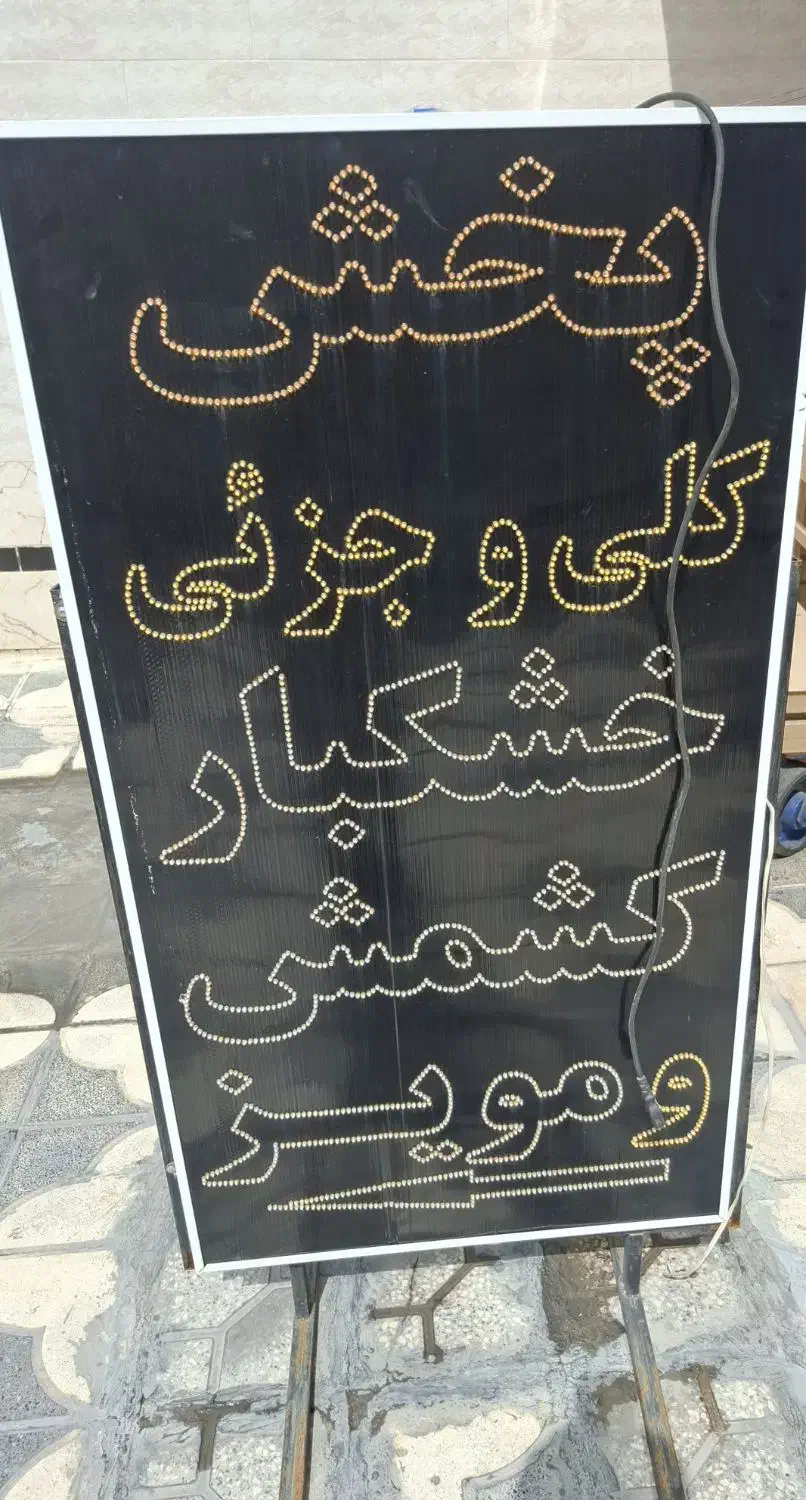 پخش
کلی و جزئی
خشکبار
کشمش
و مویز